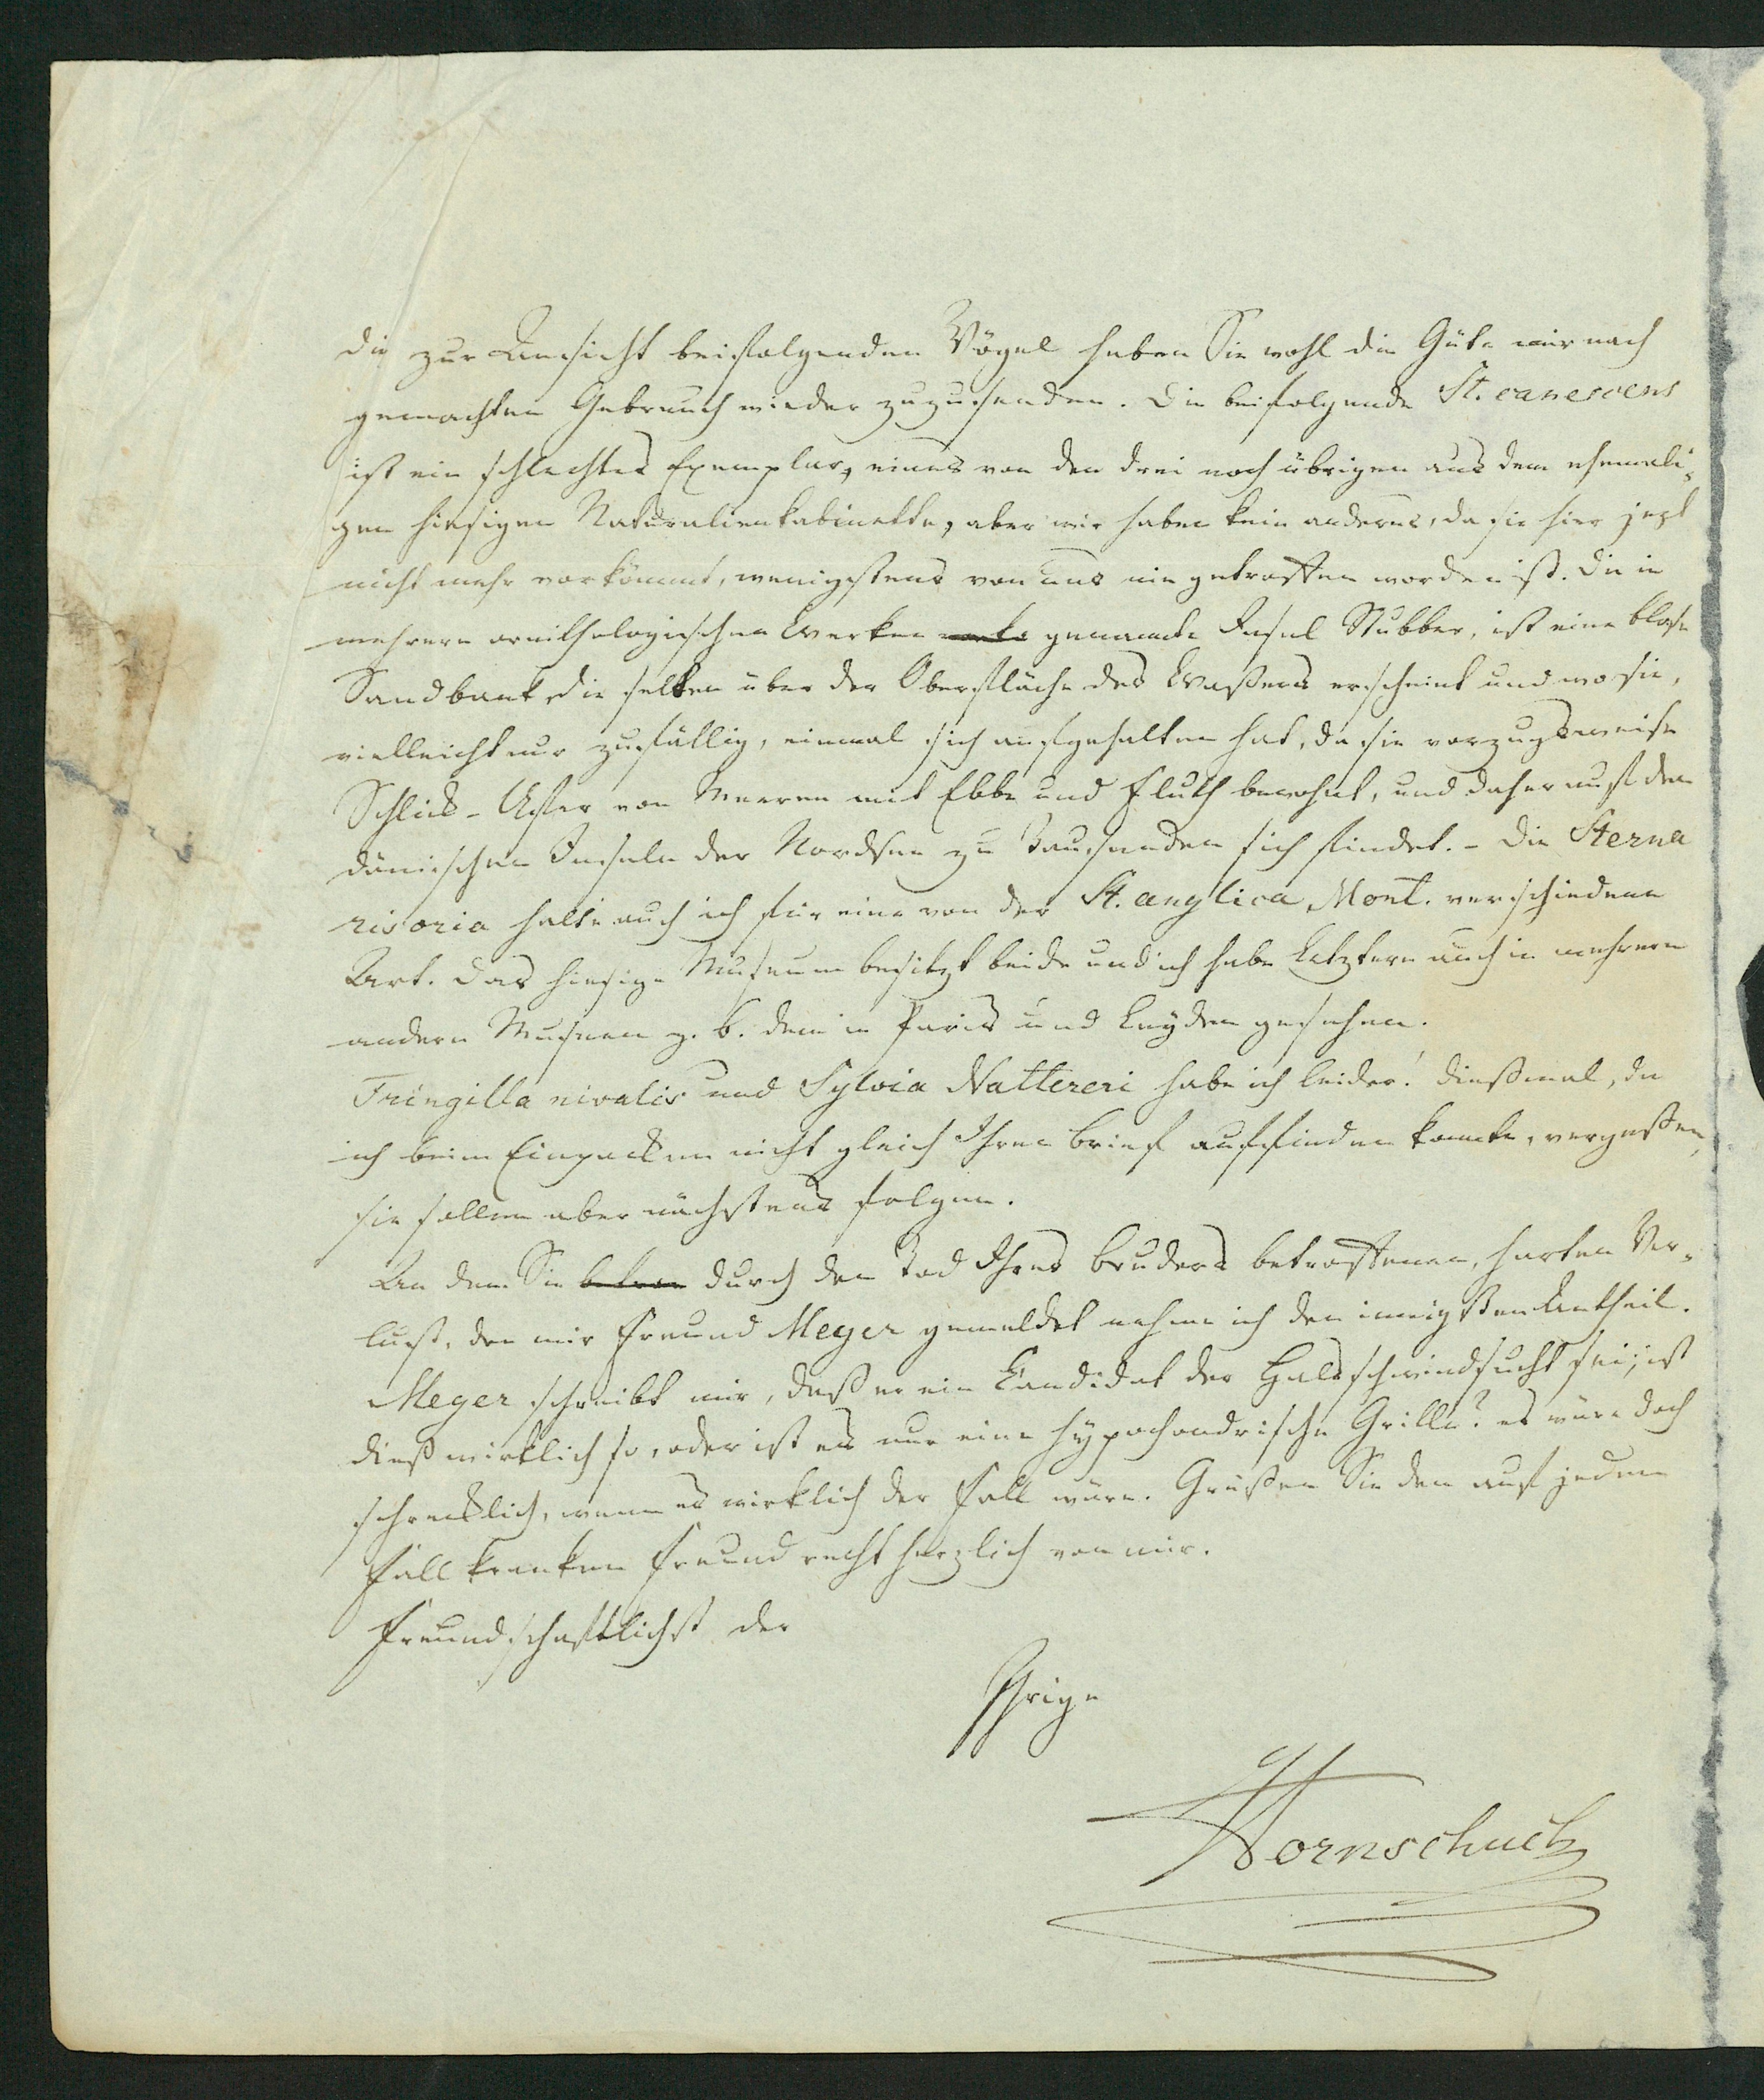 die zur Ansicht beifolgenden Vögel haben Sie wohl die Güte mir nach
gemachten Gebrauch wieder zuzusenden. Die beifolgende St. canescens
ist ein schlechtes Exemplar, eines von den drei noch übrigen aus dem ehemali-
gen hiesigen Naturalienkabinette, aber wir haben kein anderes, da sie hier jezt
nicht mehr vorkömmt, wenigstens von uns nie getroffen worden ist. Die in
mehrern ornithologischen Werken genannte Insel Stubber, ist eine blose
Sandbank, die selten über der Oberfläche des Waßers erscheint und wo sie,
vielleicht nur zufällig, einmal sich aufgehalten hat, da sie vorzugsweise
Schlick-Ufer von Meeren mit Ebbe und Fluth bewohnt, und daher auf den
dänischen Inseln der Nordsee zu Tausenden sich findet. - Die Sterna
risoria halte auch ich für eine von der St. anglica Mont. verschiedene
Art. Das hiesige Museum besitzt beide und ich habe Letztere auch in mehrern
andern Museen z. B. dem in Paris und Leyden gesehen.
Fringilla nivalis und Sylvia Nattereri habe ich leider! dießmal, da
ich beim Einpacken nicht gleich Ihren Brief auffinden konnte, vergeßen,
sie sollen aber nächstens folgen.
An dem Sie durch den Tod Ihres Bruders betroffenen, harten Ver-
lust, den mir Freund Meyer gemeldet nehme ich den innigsten Antheil.
Meyer schreibt mir, daß er ein Kandidat der Halsschwindsucht sei; ist
dieß wirklich so, oder ist es nur eine hypochondrische Grille? es wäre doch
schrecklich, wenn es wirklich der Fall wäre. Grüßen Sie den auf jeden
Fall kranken Freund recht herzlich von mir.
Freundschaftlichst der
Ihrige
Hornschuch